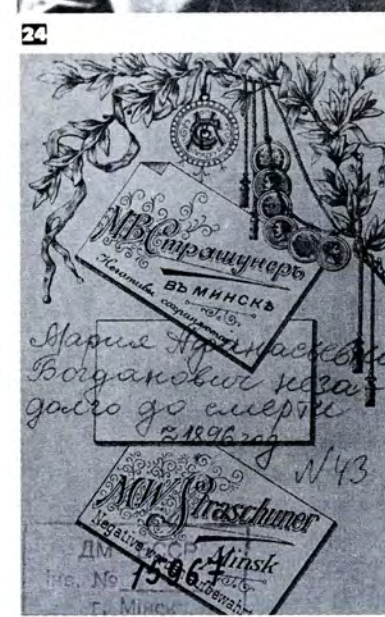 24
М.В. Страшунеръ
ВЪ МИНСКѢ
Негативы сохраняются
Мария Афанасьевна
Богданович неза
долго до смерти
1896 год
N 43
M.W. Straschuner
Minsk
Negative werden aufbewahrt
ДМ
Інв. №
15967
г. Минск